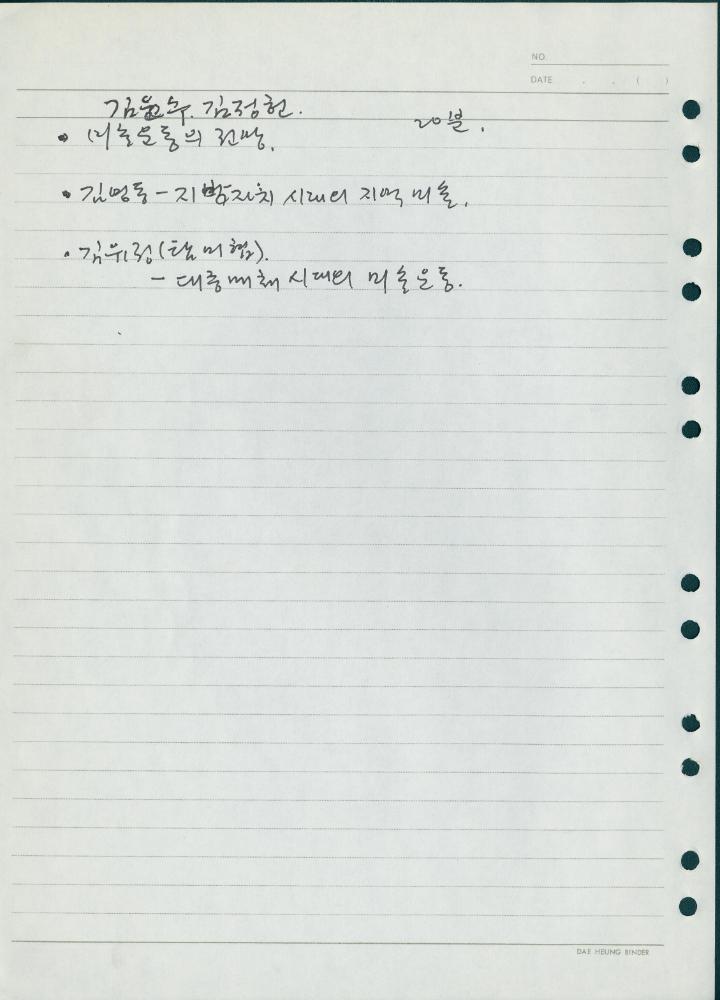 NO.
DATE . . ( )
김윤수. 김정헌.
• 미술운동의 전망. 20분.
• 김영동 - 지방자치 시대의 지역 미술.
• 김위정(탐미협).
- 대중매체 시대의 미술운동.
DAE HEUNG BINDER